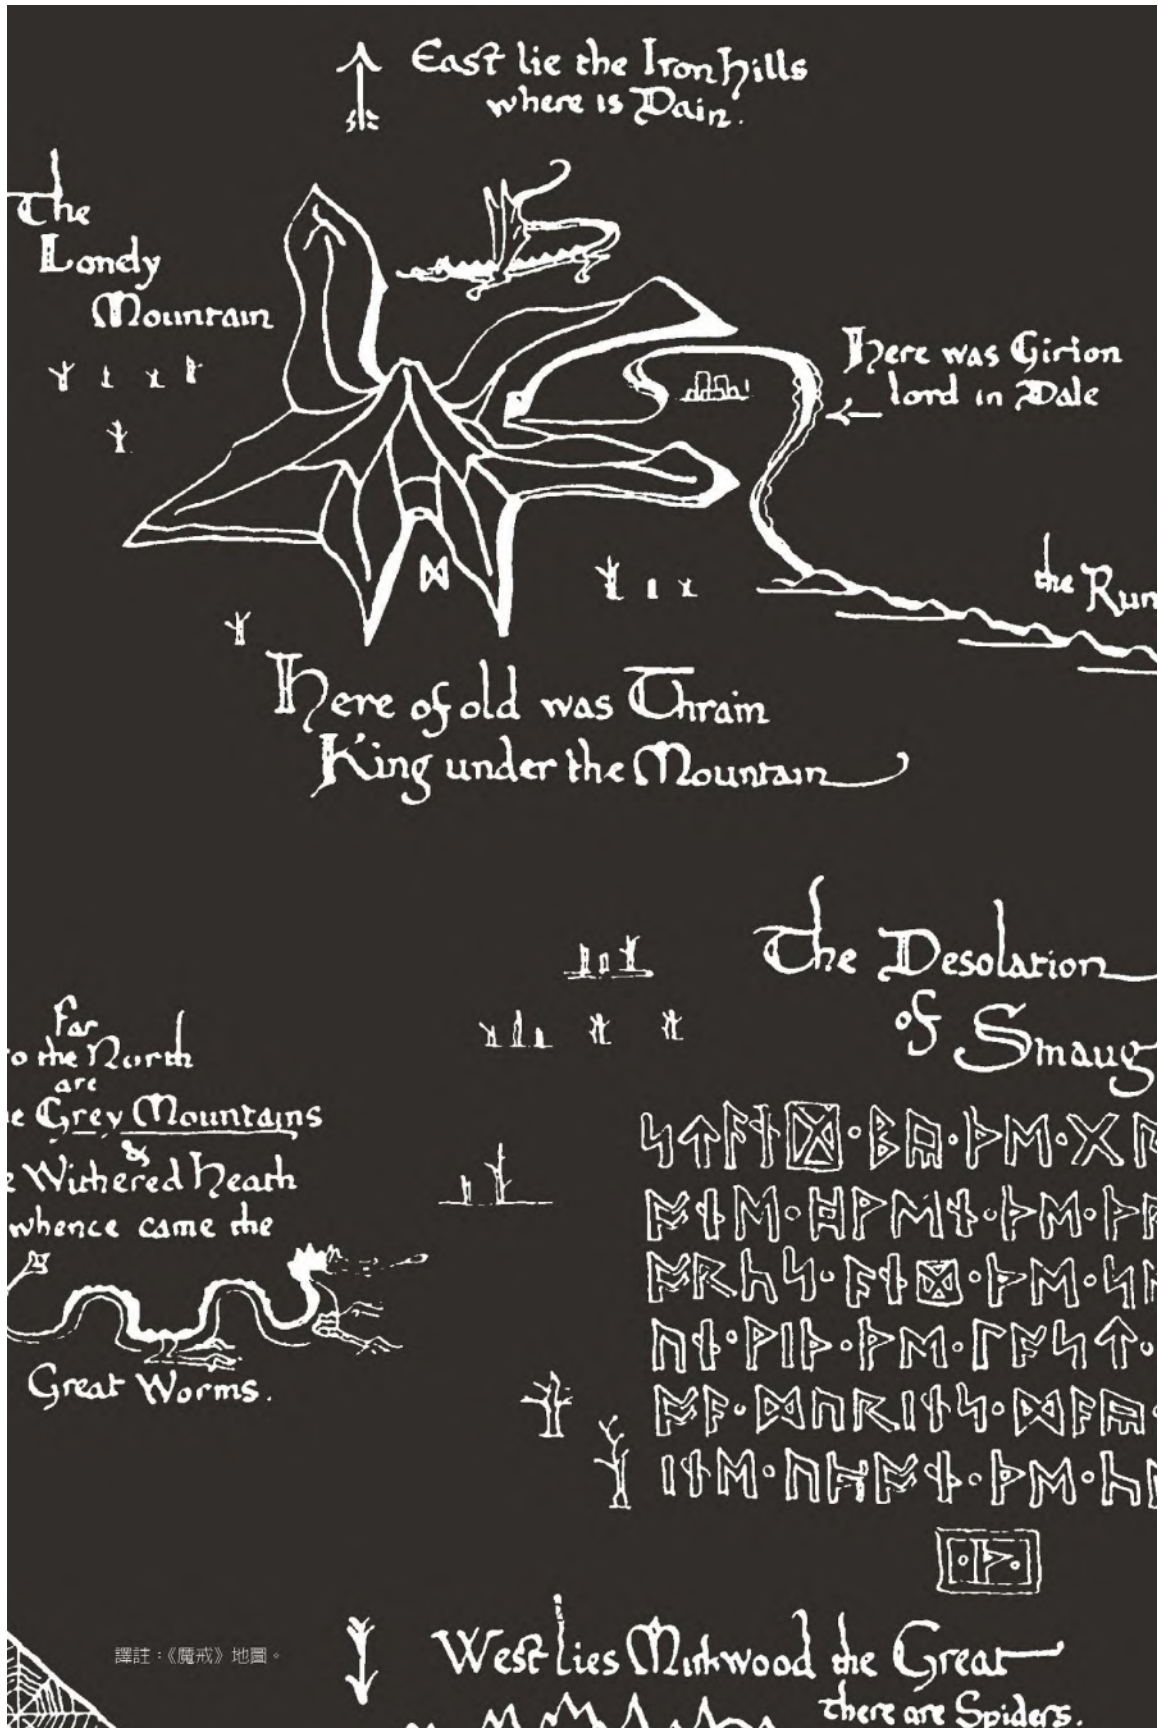 East lie the Iron Hills
where is Dain.
The
Lonely
Mountain
Here was Girion
lord in Dale
ᛞ
the Run
Here of old was Thrain
King under the Mountain
The Desolation
of Smaug
Far
o the North
are
e Grey Mountains
&
e Withered Heath
whence came the
Great Worms.
ᛋᛏᚪᚾᛞ᛫ᛒᚣ᛫ᚦᛖ᛫ᚷᚱ
ᚩᚾᛖ᛫ᚻᚹᛖᚾ᛫ᚦᛖ᛫ᚦᚱ
ᚪᚾᛞ᛫ᚦᛖ᛫ᛋ
ᚢᚾ᛫ᚹᛁᚦ᛫ᚦᛖ᛫ᛚᚪᛋᛏ᛫
ᚩᚠ᛫ᛞᚢᚱᛁᚾᛋ᛫ᛞᚪᚣ᛫
ᛁᚾᛖ᛫ᚢᛈᚩᚾ᛫ᚦᛖ᛫ᚳ
᛫ᚦ᛫
West lies Mirkwood the Great
there are Spiders.
譯註：《魔戒》地圖。